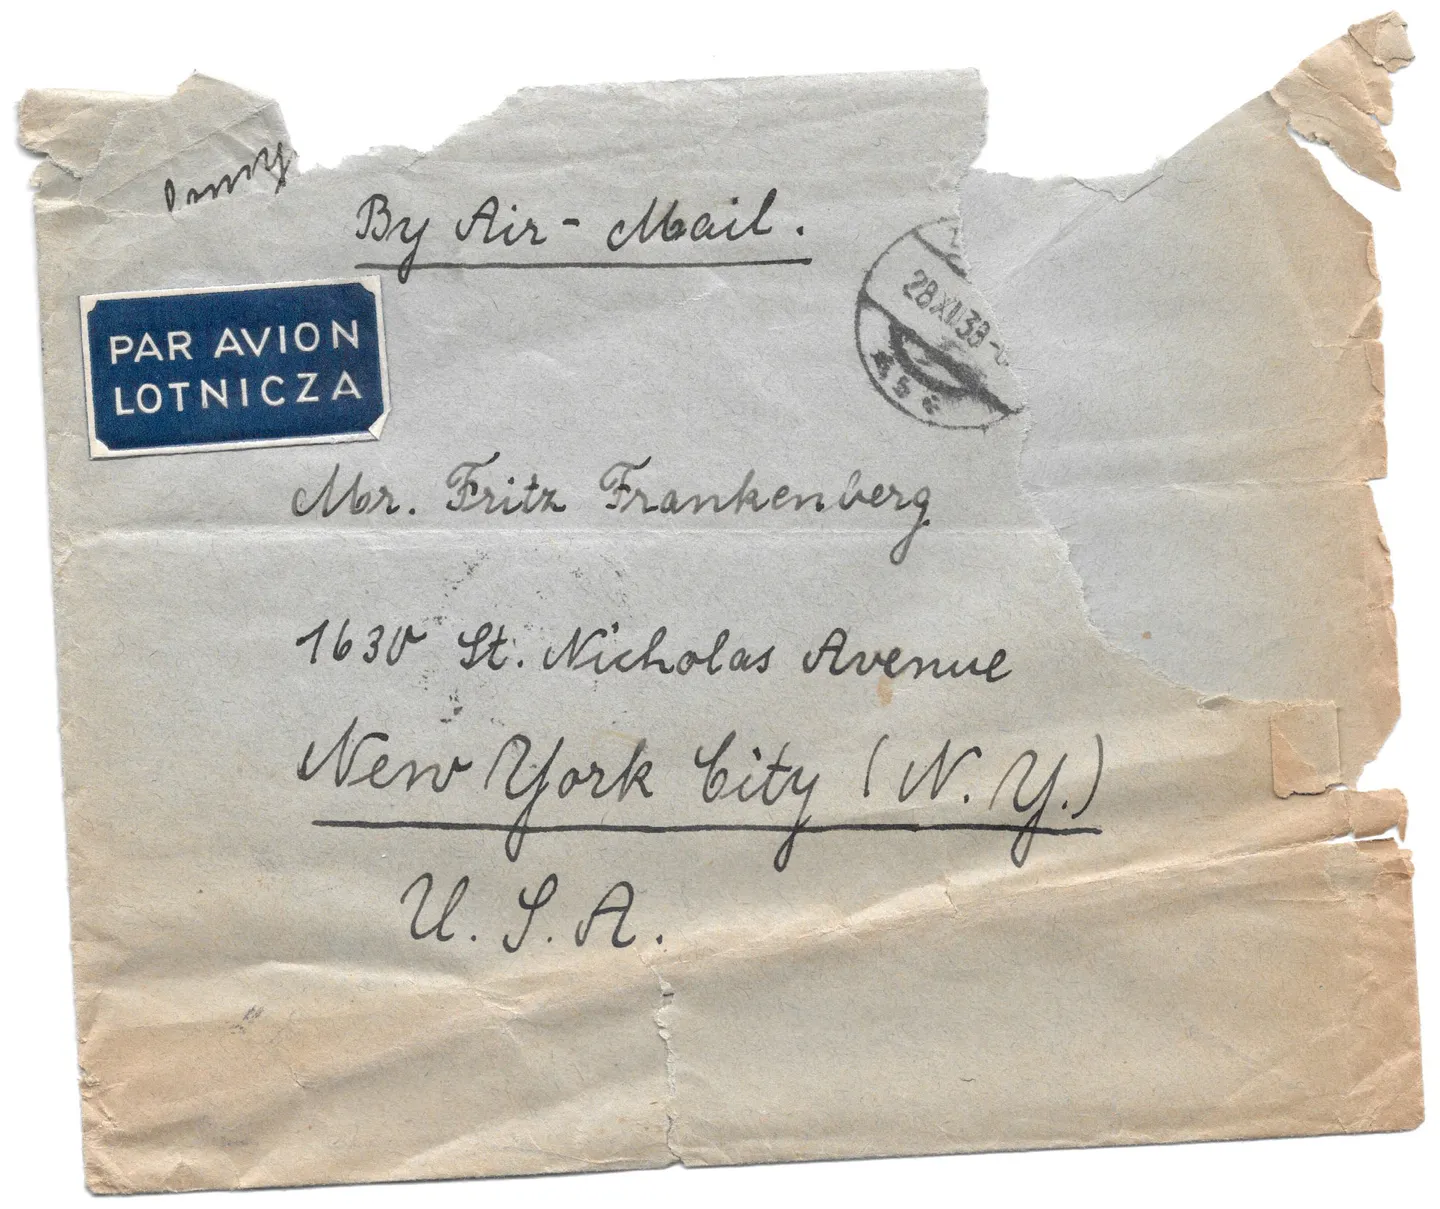 By Air-Mail.
28.XII.38
PAR AVION
LOTNICZA
Mr. Fritz Frankenberg
1630 St. Nicholas Avenue
New York City (N.Y.)
U.S.A.